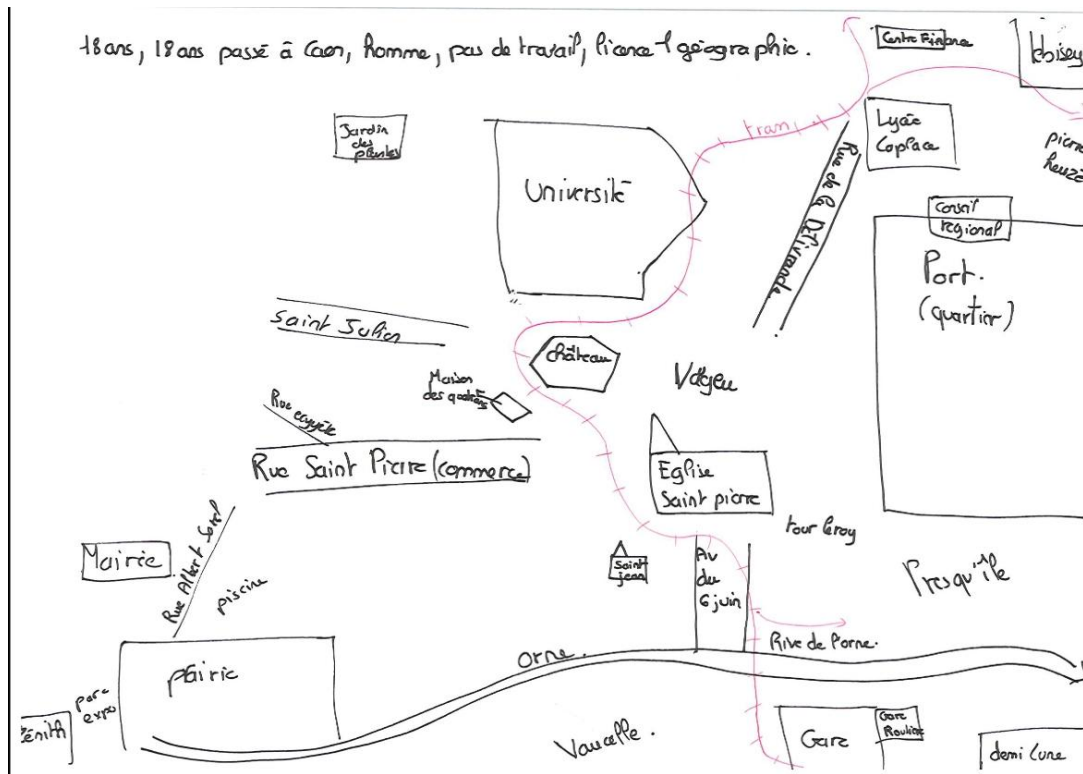 18 ans, 18 ans passé à Caen, homme, pas de travail, licence 1 géographie.
Centre Finance
Jardin
des
plantes
tram
Lycée
Laplace
pierre
heuzé
Université
Rue de la Délivrande
Conseil
régional
Port.
(quartier)
Saint Julien
château
Maison
des quatrans
Vaugeu
Rue ecuyère
Rue Saint Pierre (commerce)
Eglise
Saint pierre
tour leroy
Mairie
Rue Albert Sorel
piscine
Saint
jean
Av
du
6 juin
Presqu'île
Rive de l'orne.
Orne.
prairie
parc
expo
Zénith
Vaucelle.
Gare
Gare
Routière
demi lune